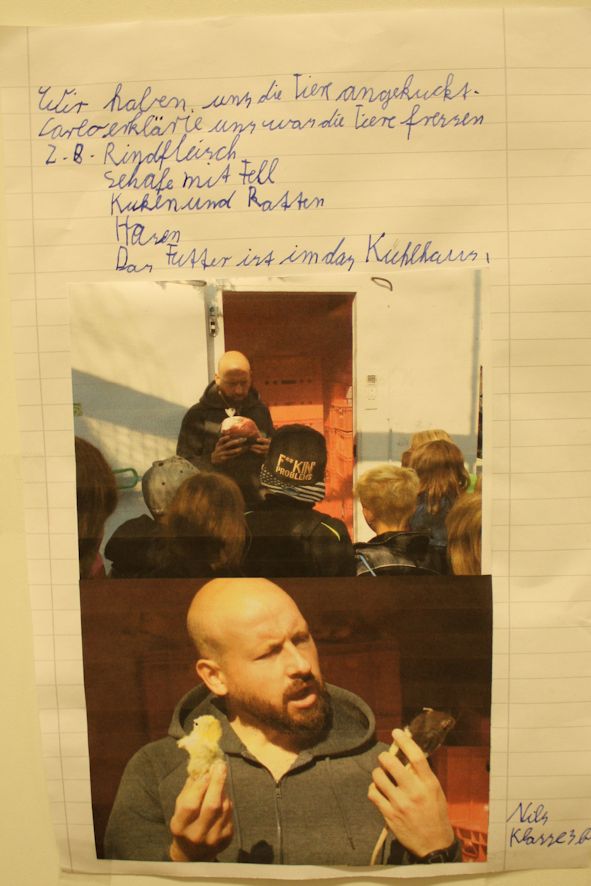 Wir haben uns die Tiere angekuckt.
Carlo erklärte uns was die Tiere fressen
Z.B. Rindfleisch
Schafe mit Fell
Küken und Ratten
Hasen
Das Futter ist im das Kühlhaus.
F**KIN'
PROBLEMS
Nils
Klasse 3b